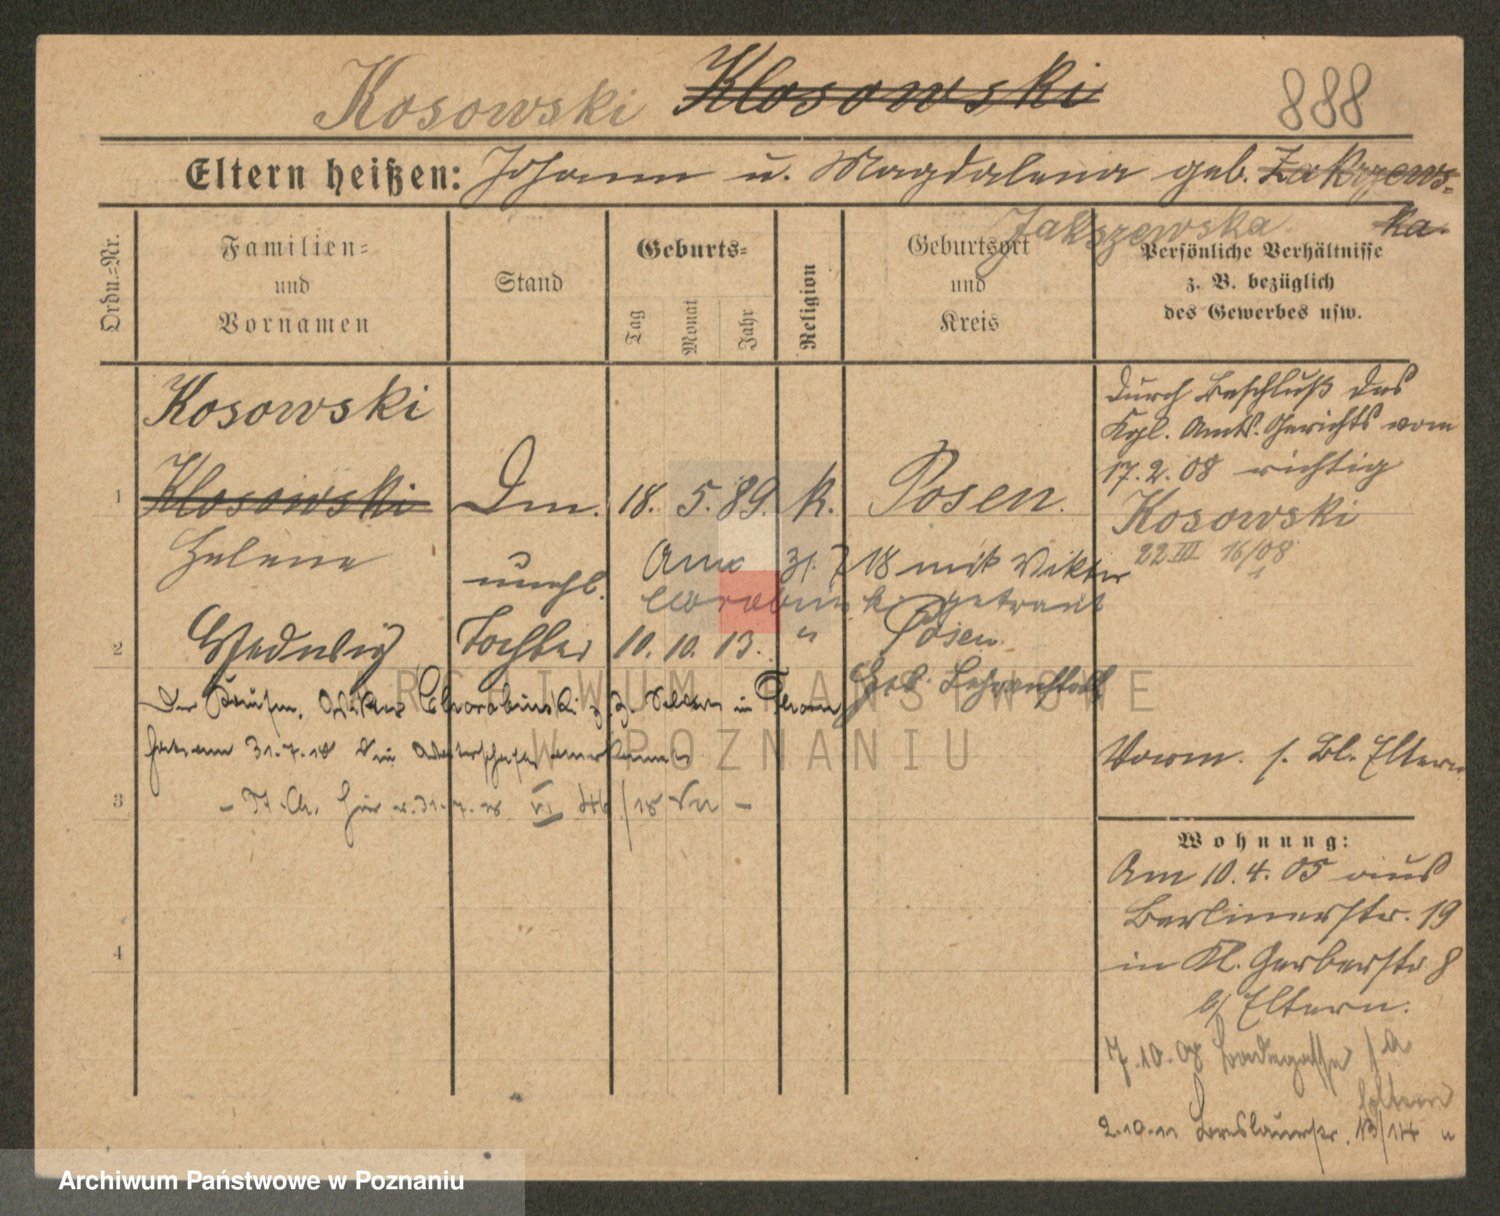 Kosowski Klosowski 888
Eltern heißen: Johann u. Magdalena geb. Zakrzews-
ka.
Jakszewska
Ordn.=Nr.
Familien=
und
Vornamen
Stand
Geburts=
Tag
Monat
Jahr
Religion
Geburtsort
und
Kreis
Persönliche Verhältnisse
z. B. bezüglich
des Gewerbes usw.
Kosowski
1 Klosowski Dm. 18. 5. 89. k. Posen.
Helene
Am 31. 7 18 mit Viktor
getraut
unehl.
2 Hedwig Tochter 10. 10. 13. " Posen
Geb. Lehranstalt
Der in Thorn
hat am 31.7.18 die Vaterschaft anerkannt
3
4
Durch Beschluß des
Kgl. Amts-Gerichts vom
17.2.08 richtig
Kosowski
22 III 16/08
Vorm. s. Bl. Eltern
Wohnung:
Am 10.4.05 aus
Berlinerstr. 19
in Kl. Gerberstr 8
b/ Eltern.
7.10.08
Eltern
2.10.11 Breslauerstr. 13/14 "
ARCHIWUM PAŃSTWOWE
W POZNANIU
Archiwum Państwowe w Poznaniu